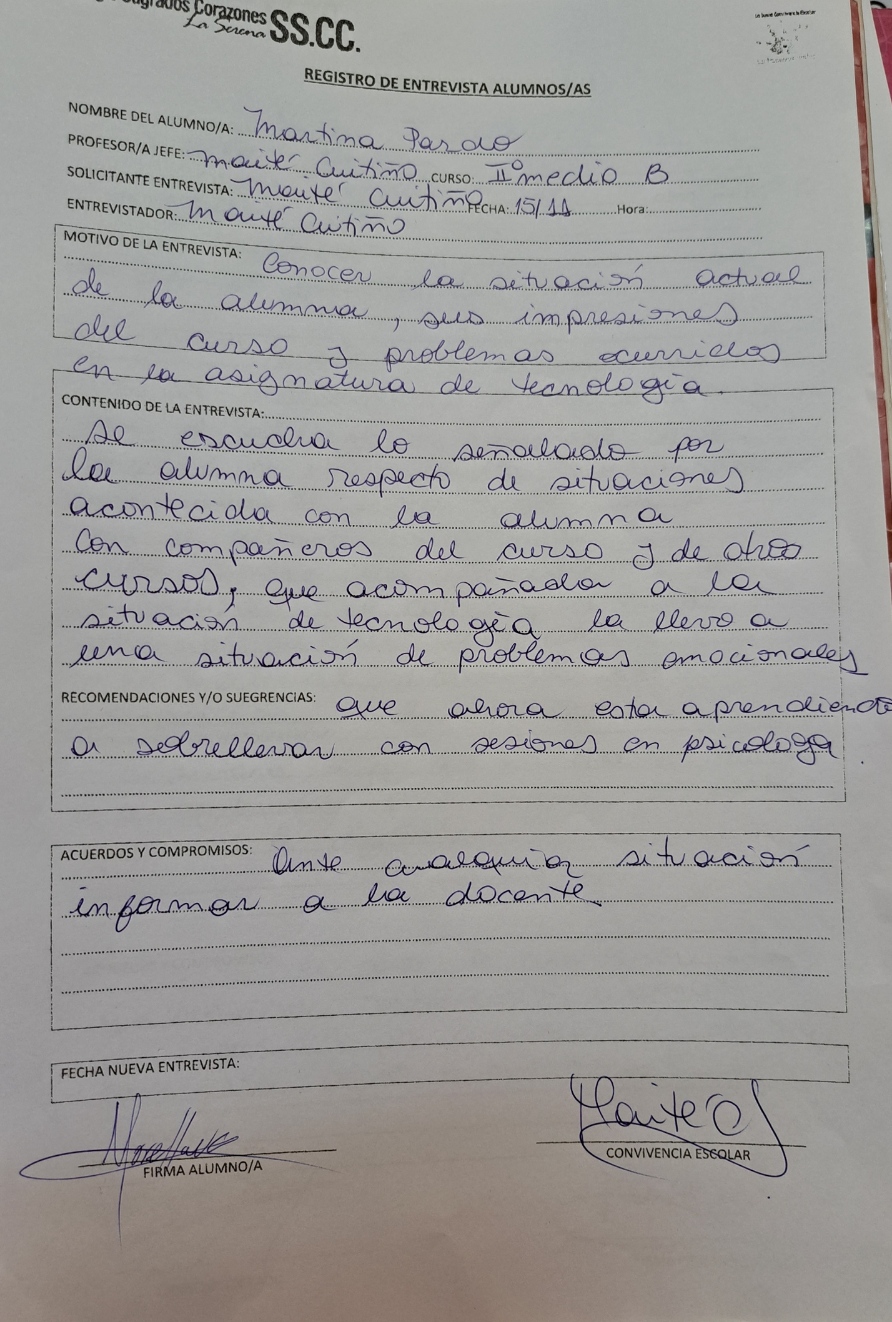 Sagrados Corazones
La Serena SS.CC.
REGISTRO DE ENTREVISTA ALUMNOS/AS
NOMBRE DEL ALUMNO/A: Martina Pardo
PROFESOR/A JEFE: Maité Cuitiño CURSO: II° medio B
SOLICITANTE ENTREVISTA: Maité Cuitiño FECHA: 15/11 Hora:
ENTREVISTADOR: Maité Cuitiño
MOTIVO DE LA ENTREVISTA: Conocer la situación actual
de la alumna, sus impresiones
del curso y problemas ocurridos
en la asignatura de tecnología.
CONTENIDO DE LA ENTREVISTA:
Se escucha lo señalado por
la alumna respecto de situaciones
acontecida con la alumna
con compañeros del curso y de otros
cursos, que acompañada a la
situación de tecnología la llevo a
una situación de problemas emocionales
RECOMENDACIONES Y/O SUEGRENCIAS: que ahora esta aprendiendo
a sobrellevar con sesiones en psicologa
ACUERDOS Y COMPROMISOS: Ante cualquier situación
informar a la docente
FECHA NUEVA ENTREVISTA:
FIRMA ALUMNO/A
CONVIVENCIA ESCOLAR